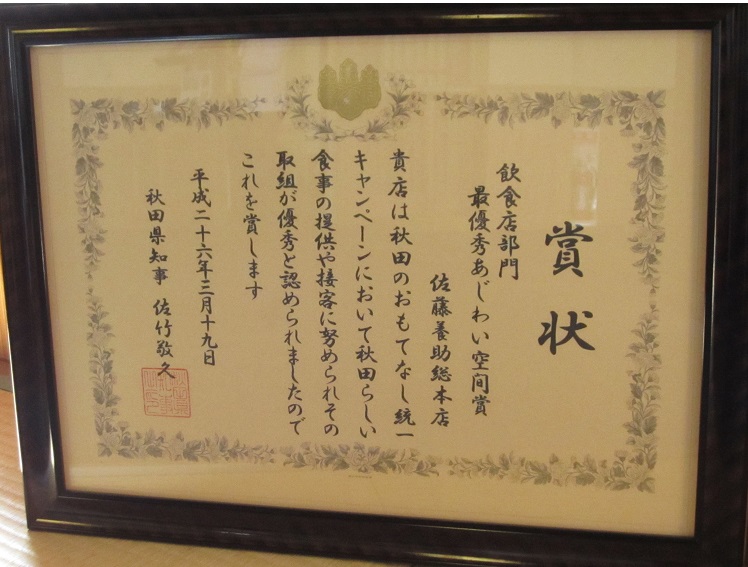 賞状
飲食店部門
最優秀あじわい空間賞
佐藤養助総本店
貴店は秋田のおもてなし統一
キャンペーンにおいて秋田らしい
食事の提供や接客に努められその
取組が優秀と認められましたので
これを賞します
平成二十六年三月十九日
秋田県知事 佐竹敬久